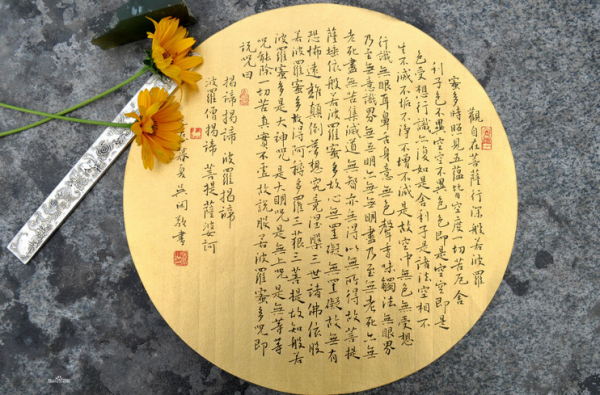 觀自在菩薩行深般若波羅
蜜多時照見五蘊皆空度一切苦厄舍
利子色不異空空不異色色即是空空即是
色受想行識亦復如是舍利子是諸法空相不
生不滅不垢不淨不增不減是故空中無色無受想
行識無眼耳鼻舌身意無色聲香味觸法無眼界
乃至無意識界無無明亦無無明盡乃至無老死亦無
老死盡無苦集滅道無智亦無得以無所得故菩提
薩埵依般若波羅蜜多故心無罣礙無罣礙故無有
恐怖遠離顛倒夢想究竟涅槃三世諸佛依般
若波羅蜜多故得阿耨多羅三藐三菩提故知般若
波羅蜜多是大神咒是大明咒是無上咒是無等等
咒能除一切苦真實不虛故說般若波羅蜜多咒即
說咒曰
揭諦揭諦 波羅揭諦
波羅僧揭諦 菩提薩婆訶
春月吳同敬書